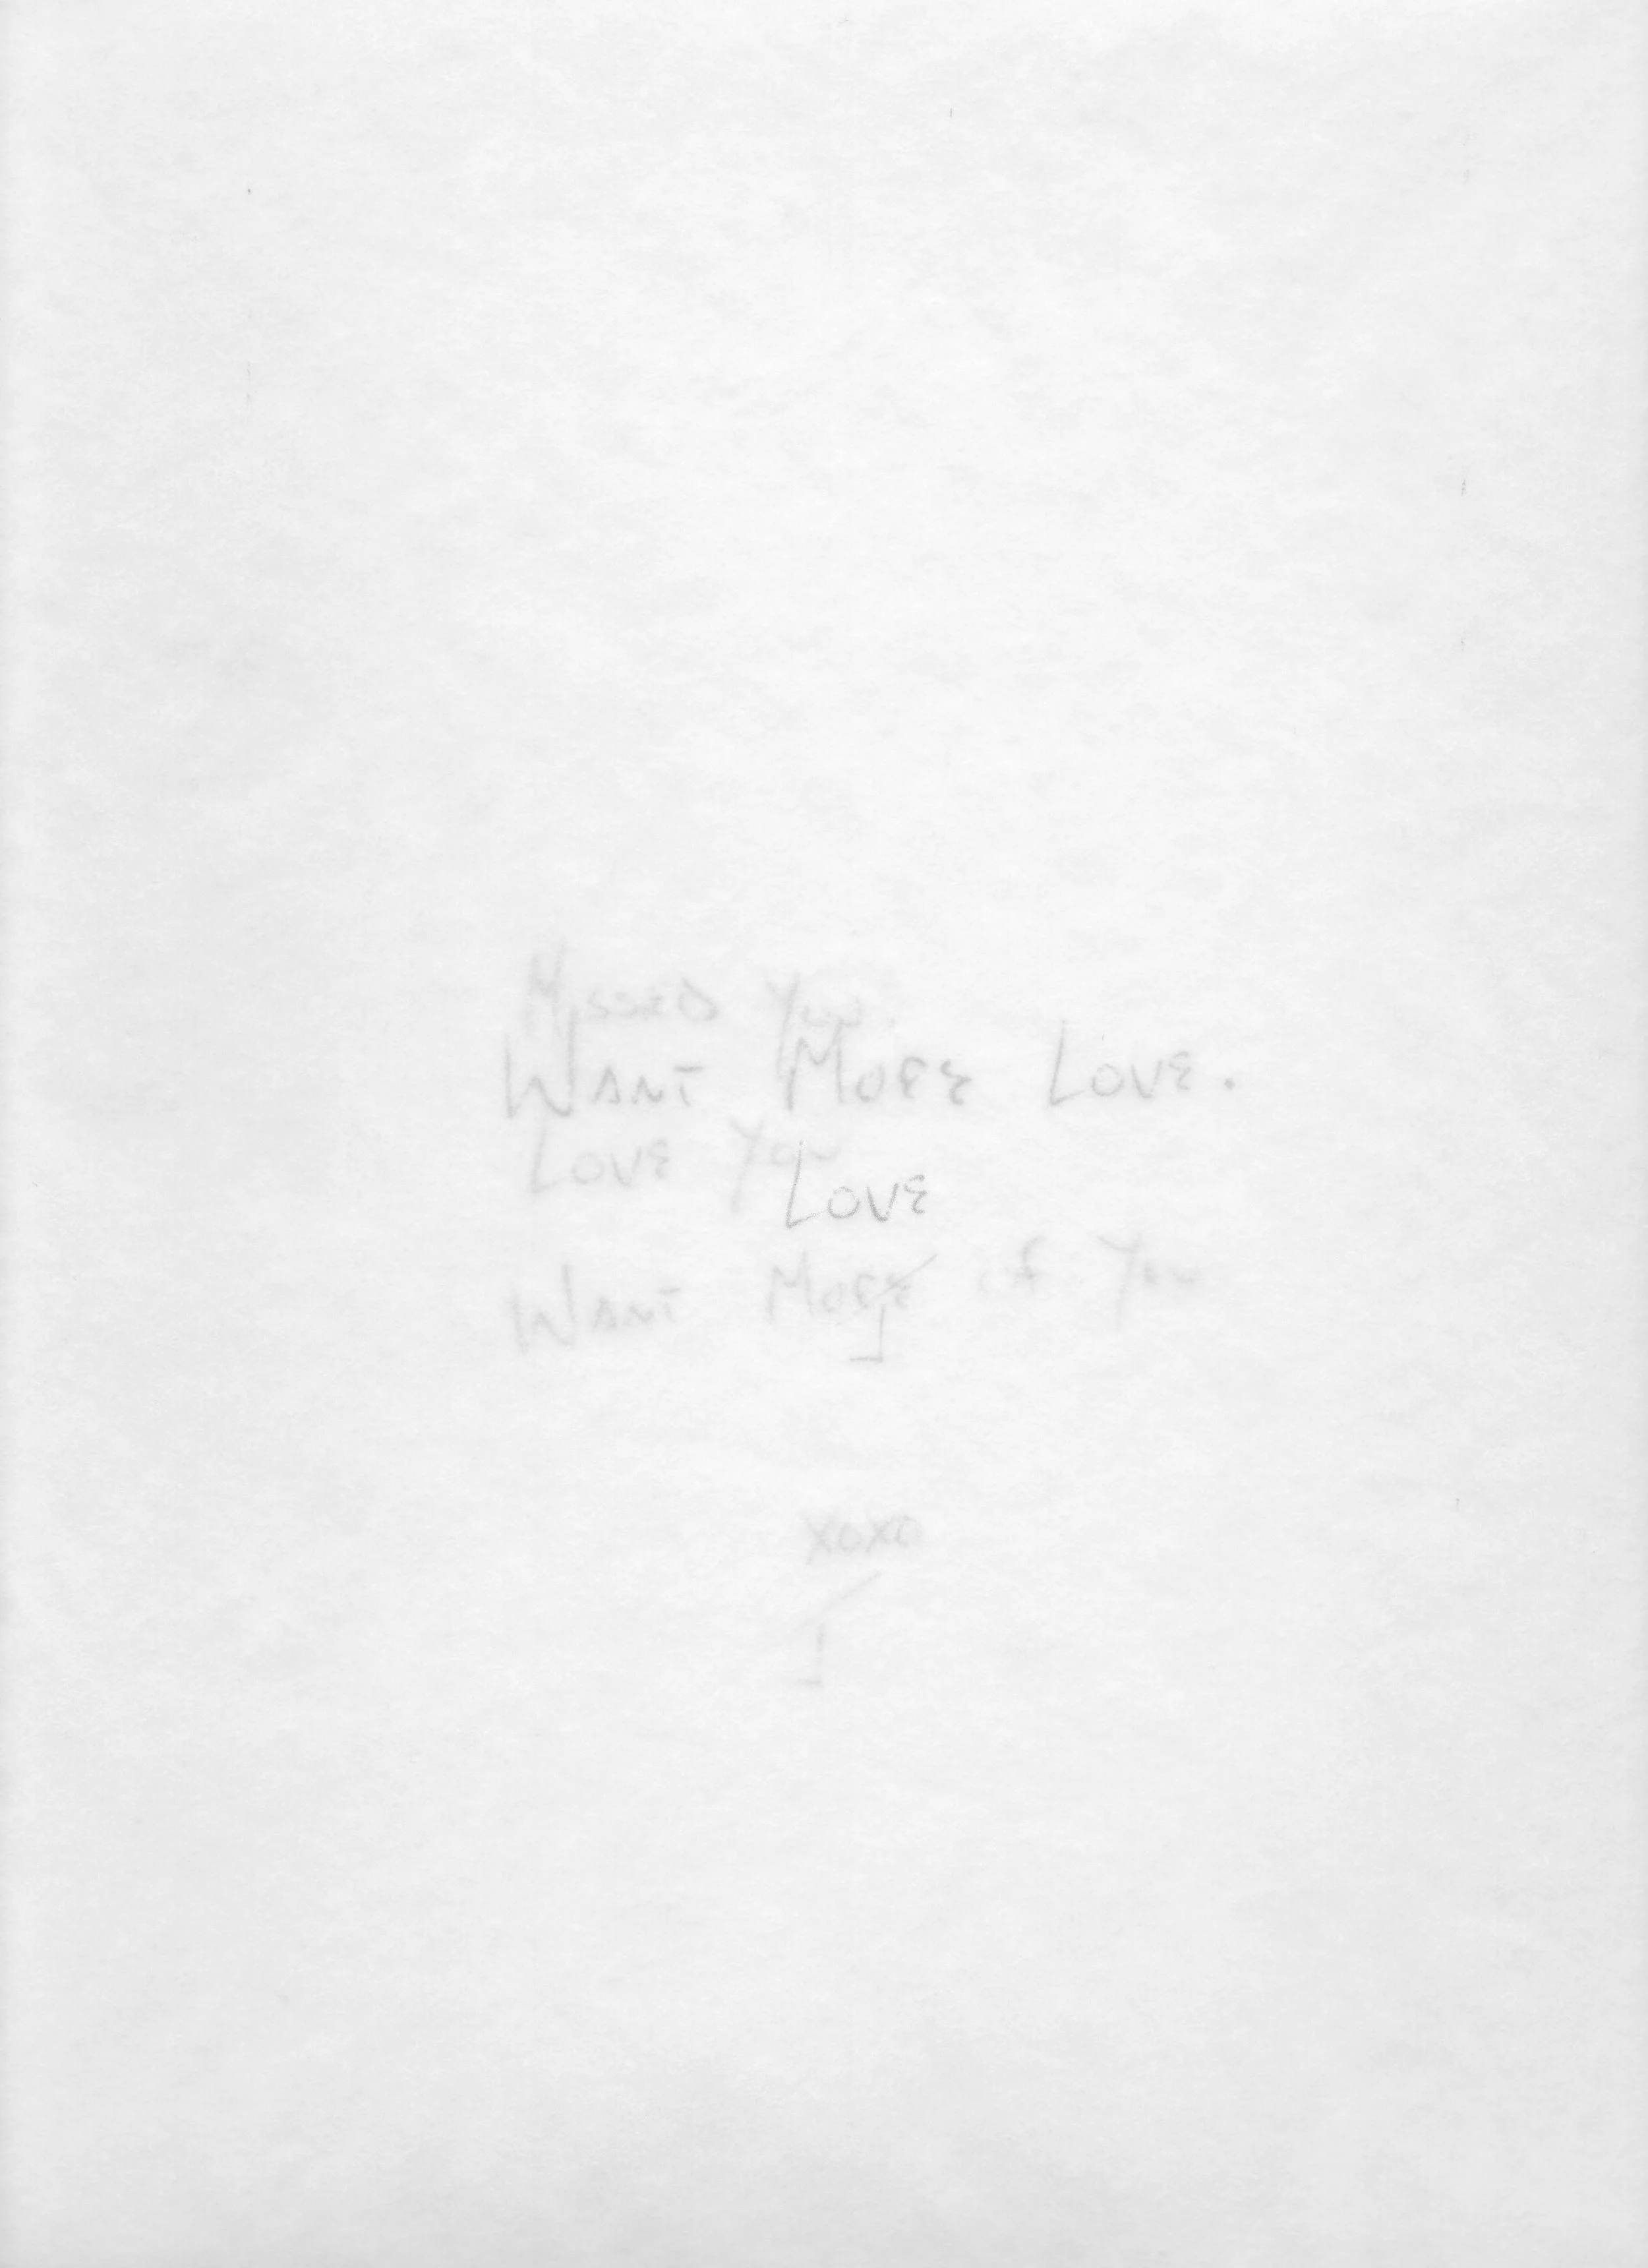 Missed You.
Want More Love.
Love You
Love
Want More of You
J
xoxo
J